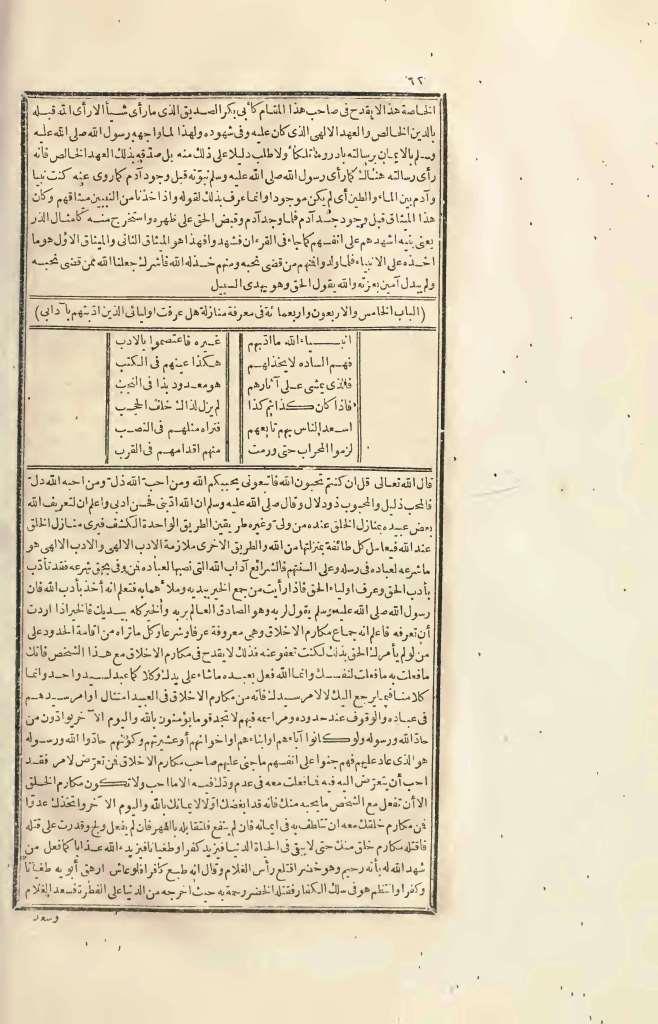 ٦٢
الخاصة هذا لا يقدح فى صاحب هذا المقام كأبى بكر الصديق الذى ما رأى شيأ الا رأى الله قبله
بالدين الخالص والعهد الالهى الذى كان عليه وفى شهوده ولهذا لما واجهه رسول الله صلى الله عليه
وسلم بالايمان برسالته بادر وما تلكأ ولا طلب دليلا على ذلك منه بل صدّقه بذلك العهد الخالص فانه
رأى رسالته هنالك كما رأى رسول الله صلى الله عليه وسلم نبوّته قبل وجود آدم كما روى عنه كنت نبيا
وآدم بين الماء والطين أى لم يكن موجودا وانما عرف بذلك لقوله واذ اخذنا من النبيين ميثاقهم وكان
هذا الميثاق قبل وجود جسد آدم فلما وجد آدم وقبض الحق على ظهره واستخرج منه كأمثال الذر
يعنى بنيه اشهدهم على انفسهم كما جاء فى القرءان فشهدوا فهذا هو الميثاق الثانى والميثاق الاوّل هو ما
اخذه على الانبياء فلما ولدوا فمنهم من قضى نحبه ومنهم خذله الله فأشرك جعلنا الله ممن قضى نحبه
ولم يبدل آمين بعزته والله يقول الحق وهو يهدى السبيل
(الباب الخامس والاربعون واربعمائة فى معرفة منازلة هل عرفت اوليائى الذين ادّبتهم بآدابى)
انبياء الله ما ادبهم غيره فاعتصموا بالادب
فهم الساده لا يخذلهم هكذا عينهم فى الكتب
فالذى يمشى على آثارهم هو معدود بذا فى النجب
فاذا كان كذا ثم كذا لم يزل لذاك خلف الحجب
اسعد الناس بهم تابعهم فتراه مثلهم فى النصب
لزموا المحراب حتى ورمت منهم اقدامهم فى القرب
قال الله تعالى قل ان كنتم تحبون الله فاتبعونى يحببكم الله ومن احب الله ذل ومن احبه الله دل
فالمحب ذليل والمحبوب ذو دلال وقال صلى الله عليه وسلم ان الله ادّبنى فحسن ادبى واعلم ان لتعريف الله
بعض عبيده بمنازل الخلق عنده من ولىّ وغيره طريقين الطريق الواحدة الكشف فيرى منازل الخلق
عند الله فيعامل كل طائفة بمنزلتها من الله والطريق الاخرى ملازمة الادب الالهى والادب الالهى هو
ما شرعه لعباده فى رسله وعلى السنتهم فالشرائع آداب الله التى نصبها لعباده فمن وفى بحق شرعه فقد تأدّب
بأدب الحق وعرف اولياء الحق فاذا رأيت من جمع الخير بيديه وملأهما به فتعلم انه أخذ بأدب الله فان
رسول الله صلى الله عليه وسلم يقول لربه وهو الصادق العالم بربه والخير كله بيديك فالخير اذا اردت
أن تعرفه فاعلم انه جماع مكارم الاخلاق وهى معروفة عرفا وشرعا وكل ما تراه من اقامة الحدود على
من لو لم يأمرك الحق بذلك لكنت تعفو عنه فذلك لا يقدح فى مكارم الاخلاق مع هذا الشخص فانك
ما فعلت به ما فعلت لنفسك وانما الله فعل بعبده ما شاء على يدك وكلا كما عبد لسيد واحد وانما
كلامنا فيما يرجع اليك لا لامر سيدك فانه من مكارم الاخلاق فى العبيد امتثال اوامر سيدهم
فى عباده والوقوف عند حدوده ومراسمه فيهم لا تجد قوما يؤمنون بالله واليوم الآخر يوادّون من
حادّ الله ورسوله ولو كانوا آباءهم او ابناءهم او اخوانهم أو عشيرتهم وكونهم حادّوا الله ورسوله
هو الذى عاد عليهم فهم جنوا على انفسهم ما جنى عليهم صاحب مكارم الاخلاق فمن تعرّض لامر فقد
احب أن يتعرّض اليه فيه فما فعلت معه فى عدم ودّك فيه الا ما احب ولا تكون مكارم الخلق
الا أن تفعل مع الشخص ما يحبه منك فانه قد ابغضك اوّلا لايمانك بالله واليوم الآخر واتخذك عدوّا
فمن مكارم خلقك معه ان تتلطف به فى ايمانه فان لم ينفع فلتقابله بالقهر فان لم يفعل ولج وقدرت على قتله
فاقتله مكارم خلق منك حتى لا يبقى فى الحياة الدنيا فيزيد كفرا وطغيانا فيزيده الله عذابا كما فعل من
شهد الله له بأنه رحيم وهو خضر اقتلع رأس الغلام وقال انه طبع كافرا فلو عاش ارهق أبويه طغيانا
وكفرا وانتظم هو فى سلك الكفار فقتله الخضر رحمة به حيث اخرجه من الدنيا على الفطرة فسعد الغلام
وسعد